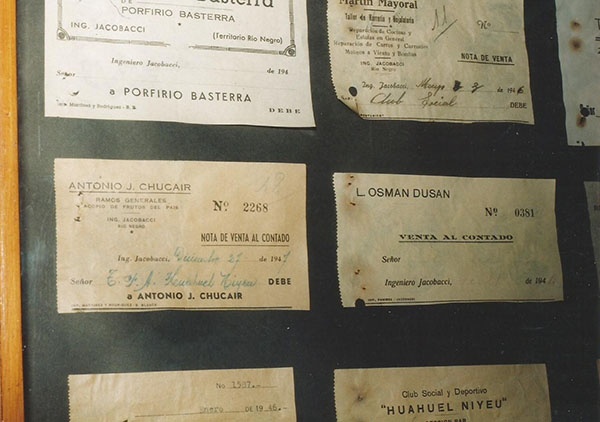 Basterra
DE
PORFIRIO BASTERRA
ING. JACOBACCI
(Territorio Río Negro)
Ingeniero Jacobacci, de 194
Señor
a PORFIRIO BASTERRA DEBE
Martin Mayoral
Taller de Herrería y Hojalatería
Reparación de Cocinas y
Calefas en General
Reparación de Carros y
Molinos a Viento y Bombas
ING. JACOBACCI
Río Negro
11
Nº
NOTA DE VENTA
Ing. Jacobacci, Mayo de 194
Club Social DEBE
ANTONIO J. CHUCAIR
RAMOS GENERALES
ACOPIO DE FRUTOS DEL PAIS
ING. JACOBACCI
RIO NEGRO
Nº 2268
NOTA DE VENTA AL CONTADO
Ing. Jacobacci, Diciembre 27 de 194
Señor C. S. A. Huahuel Niyeu DEBE
a ANTONIO J. CHUCAIR
L. OSMAN DUSAN
Nº 0381
VENTA AL CONTADO
Señor
Ingeniero Jacobacci, de 194
No 1507
Enero de 1946.
Club Social y Deportivo
"HUAHUEL NIYEU"